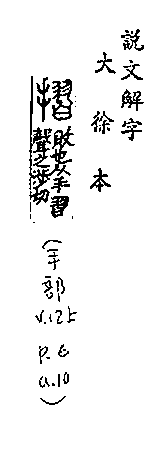 説文解字
大徐本
摺 敗也从手習
聲之涉切
(手部
V.12上
P.6
a.10)